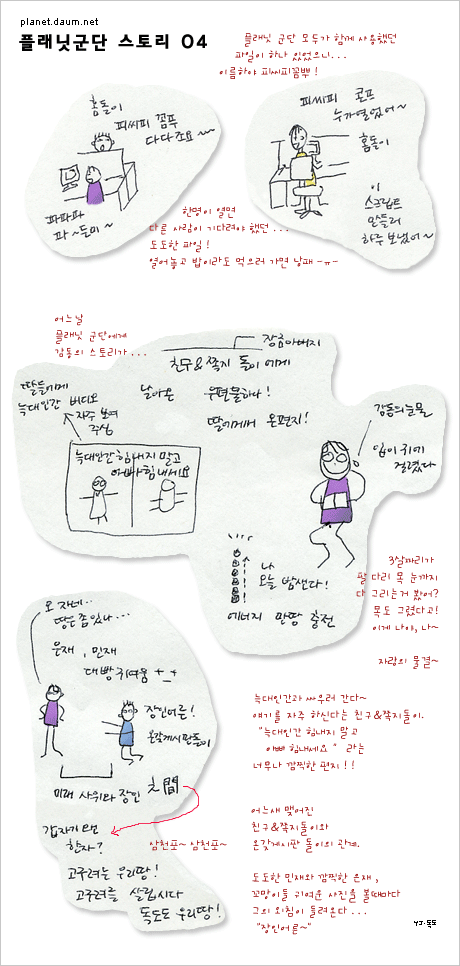 planet.daum.net
플래닛군단 스토리 04
플래닛 군단 모두가 함께 사용했던
파일이 하나 있었으니...
이름하야 피씨피꼼뿌!
홈돌이
피씨피 꼼푸
다다죠요~~
파파파
파~돌미~
피씨피 꼬프
누가열었어~
홈돌이
이
스크립트
만들러
하루 보냈어~
한명이 열면
다른 사람이 기다려야 했던...
도도한 파일!
열어놓고 밥이라도 먹으러 가면 낭패-ㅠ-
어느날
플래닛 군단에게
감동의 스토리가...
장흠아버지
친구&쪽지 돌이 에게
날아온 우편물하나!
딸에게서 온편지!
딸들에게
늑대인간 비디오
자주 보여
주심
늑대인간힘내지 말고
아빠힘내세요
감동의눈물
입이 귀에
걸렸다
나
오늘 밤샌다!
에너지 만땅 충전
3살짜리가
팔 다리 목 눈까지
다 그리는거 봤어?
목도 그렸다고!
이게 나야, 나~
자랑의 물결~
오 자네...
땅은좀있나...
은재, 민재
대빵귀여움 +_+
장인어른!
온갖게시판돌이
미래 사위와 장인 之間
갑자기 왠
한자?
삼천포~ 삼천포~
고구려는 우리땅!
고구려를 살립시다
독도도 우리땅!
늑대인간과 싸우러 간다~
얘기를 자주 하신다는 친구&쪽지돌이.
"늑대인간 힘내지 말고
아빠 힘내세요" 라는
너무나 깜찍한 편지!!
어느새 맺어진
친구&쪽지돌이와
온갖게시판 돌이의 관계.
도도한 민재와 깜찍한 은재,
꼬맹이들 귀여운 사진을 볼때마다
그의 외침이 들려온다...
"장인어른~"
YJ.독도